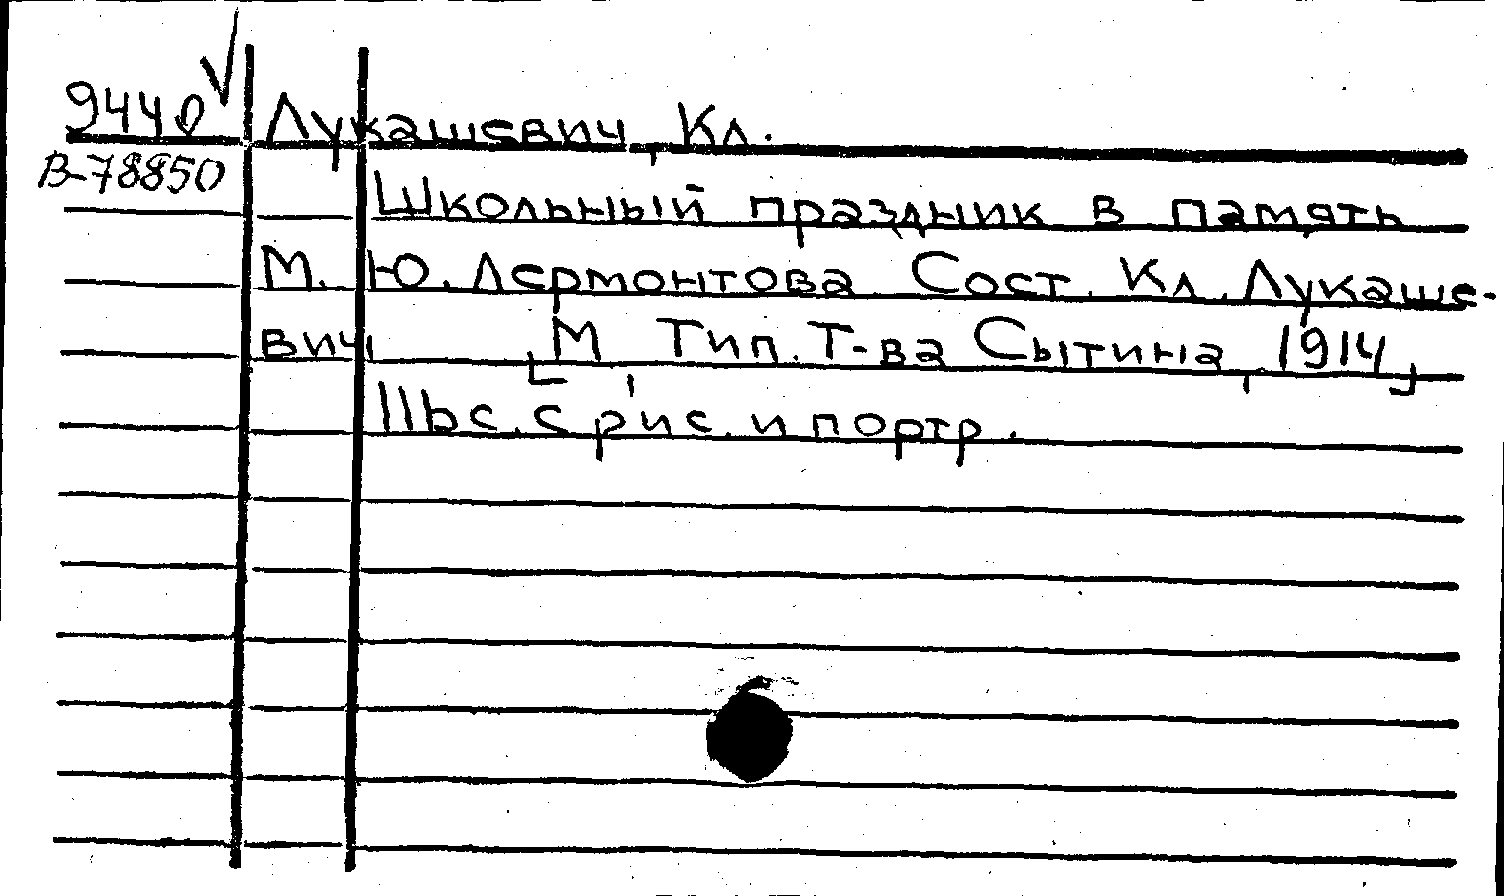 944р Лукашевич, Кл.
В-78850
Школьный праздник в память
М. Ю. Лермонтова Сост. Кл. Лукаше-
вич [М Тип. Т-ва Сытина, 1914]
116с. с рис. и портр.